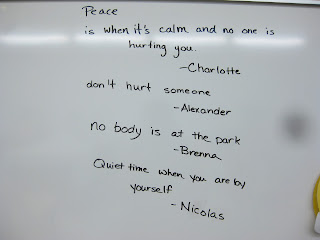 Peace
is when it's calm and no one is
hurting you.
-Charlotte
don't hurt someone
-Alexander
no body is at the park
-Brenna
Quiet time when you are by
yourself
- Nicolas